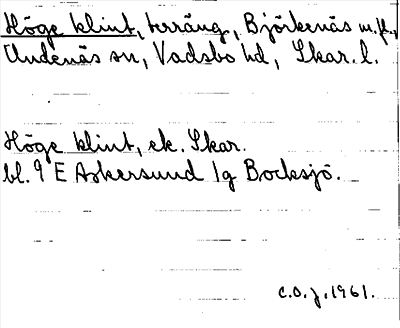 Höge klint, terräng, Björkernäs m.fl.,
Undenäs sn, Vadsbo hd, Skar. l.
Höge klint, ek. Skar.
bl. 9 E Askersund 1g Bocksjö.
C.O.J. 1961.